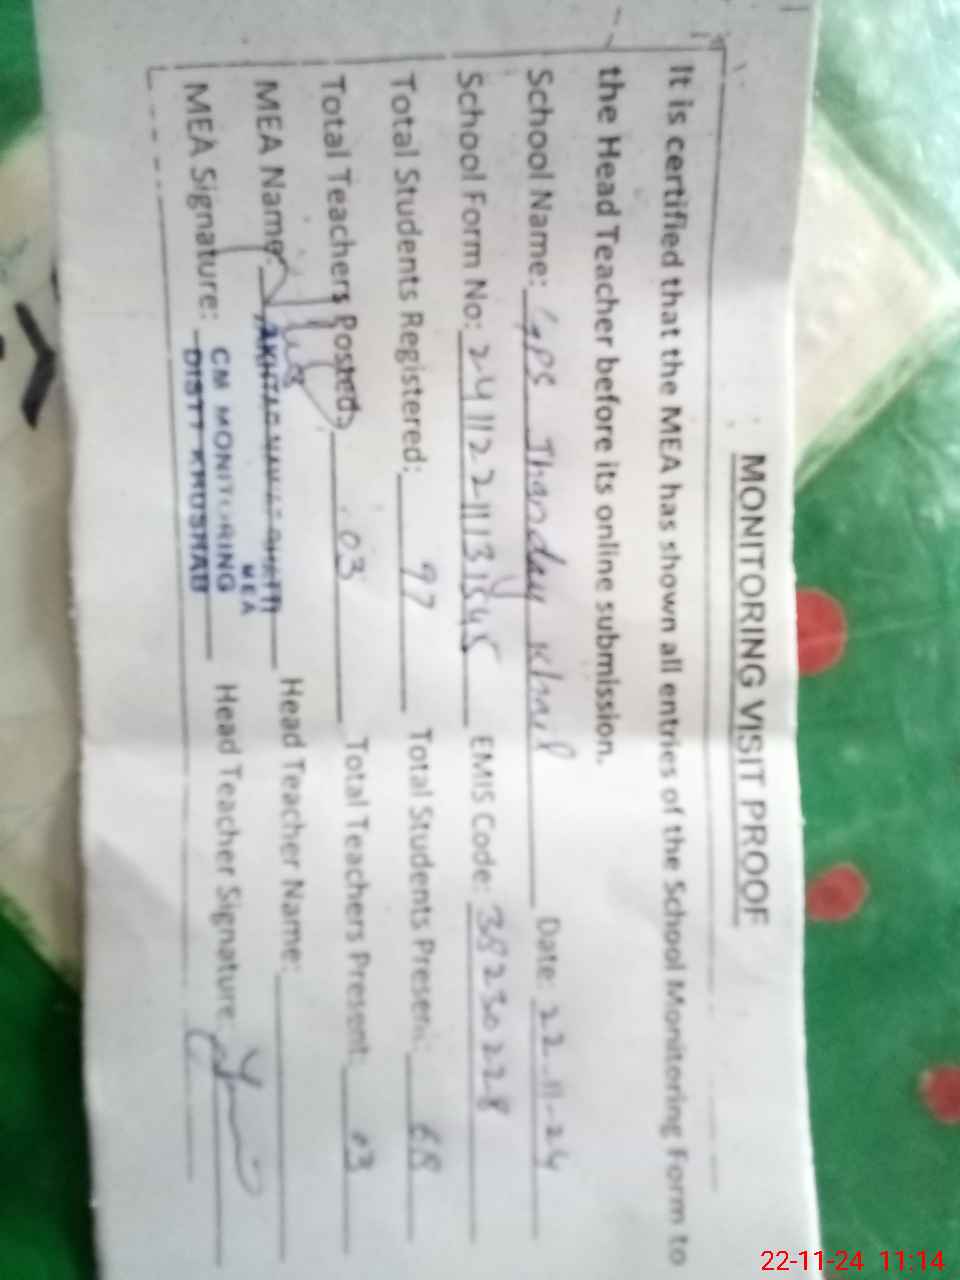 MONITORING VISIT PROOF
It is certified that the MEA has shown all entries of the School Monitoring Form to
the Head Teacher before its online submission.
School Name: GPS Thandey Khail Date: 22-11-24
School Form No: EMIS Code: 38230228
Total Students Registered: 97 Total Students Present: 68
Total Teachers Posted: 03 Total Teachers Present: 03
MEA Name: Head Teacher Name:
MEA
MEA Signature: Head Teacher Signature:
CM MONITORING
DISTT KHUSHAB
22-11-24 11:14